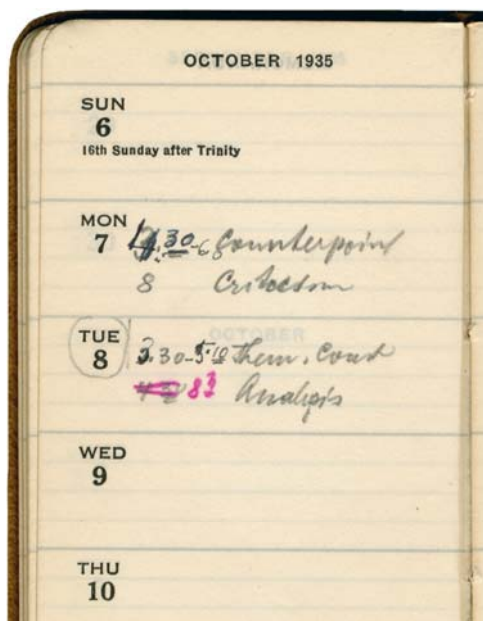 OCTOBER 1935
SUN
6
16th Sunday after Trinity
MON
7 4.30-6 Counterpoint
8 Criticism
TUE
8 3.30-5.10 Them. Coust
8 Analysis
WED
9
THU
10